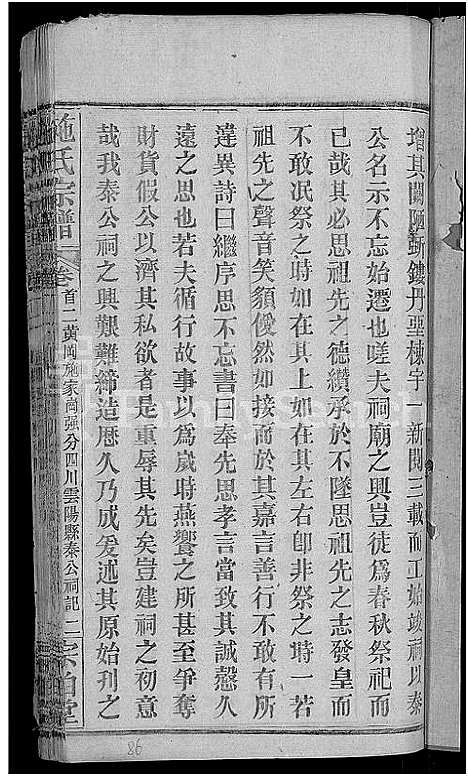 增其闕陋斵鏤丹堊棟宇一新閱三載而工始竣祠以泰
公名示不忘始遷也嗟夫祠廟之興豈徒為春秋祭祀而
已哉其必思祖先之德纘承於不墜思祖先之志發皇而
不敢氓祭之時如在其上如在其左右卽非祭之時一若
祖先之聲音笑貌僾然如接而於其嘉言善行不敢有所
違異詩曰繼序思不忘書曰奉先思孝言當致其誠慤久
遠之思也若夫循行故事以為歲時燕饗之所甚至爭奪
財貨假公以濟其私欲者是重辱其先矣豈建祠之初意
哉我泰公祠之興艱難締造歷久乃成爰述其原始刋之
施氏宗譜 卷首二 黃岡施家崗强分四川雲陽縣泰公祠記 二 堂
86